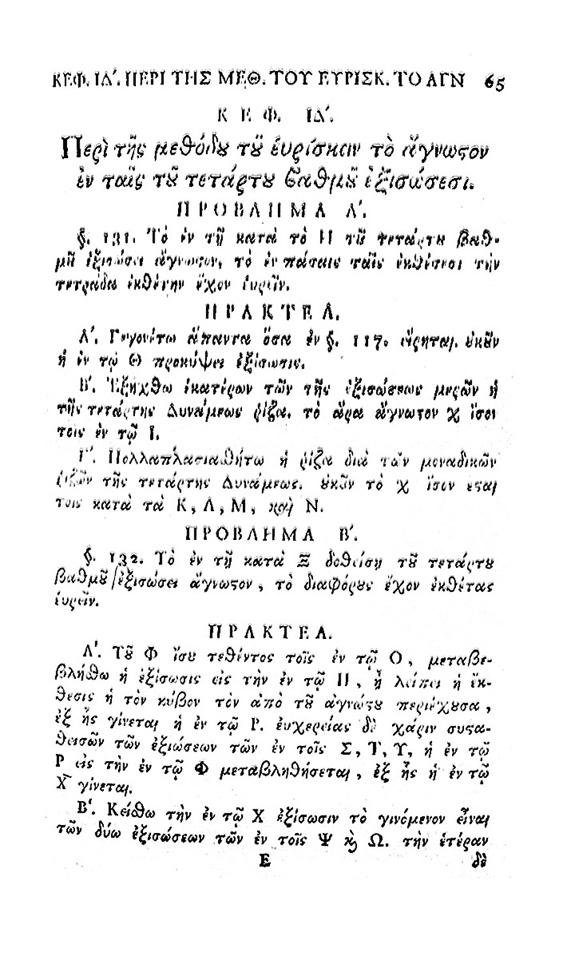 ΚΕΦ. ΙΔ'. ΠΕΡΙ ΤΗΣ ΜΕΘ. ΤΟΥ ΕΥΡΙΣΚ. ΤΟ ΑΓΝ 65
ΚΕΦ. ΙΔ'.
Περὶ τῆς μεθόδου τοῦ ἑυρίσκειν τὸ ἄγνωστον
ἐν ταῖς τοῦ τετάρτου βαθμοῦ ἐξισώσεσι.
ΠΡΟΒΛΗΜΑ Α'.
§. 131. Τὸ ἐν τῇ κατὰ τὸ Η τοῦ τετάρτου βαθ-
μοῦ ἐξισώσει ἄγνωστον, τὸ ἐν πάσαις ταῖς ἐκθέσεσι τὴν
τετράδα ἐκθέτην ἔχον ἑυρεῖν.
ΠΡΑΚΤΕΑ.
Α'. Γεγονέτω ἅπαντα ὅσα ἐν §. 117. εἴρηται. οὐκοῦν
ἡ ἐν τῷ Θ προκύψει ἐξίσωσις.
Β'. Ἐξήχθω ἑκατέρων τῶν τῆς ἐξισώσεως μερῶν ἡ
τῆς τετάρτης δυνάμεως ῥίζα. τὸ ἄρα ἄγνωστον χ ἴσον
τοῖς ἐν τῷ Ι.
Γ'. Πολλαπλασιαθήτω ἡ ῥίζα διὰ τῶν μοναδικῶν
ῥιζῶν τῆς τετάρτης δυνάμεως. οὐκοῦν τὸ χ ἴσον ἔσται
τοῖς κατὰ τὰ Κ, Λ, Μ, καὶ Ν.
ΠΡΟΒΛΗΜΑ Β'.
§. 132. Τὸ ἐν τῇ κατὰ Ξ δοθείσῃ τοῦ τετάρτου
βαθμοῦ ἐξισώσει ἄγνωστον, τὸ διαφόρους ἔχον ἐκθέτας
ἑυρεῖν.
ΠΡΑΚΤΕΑ.
Α'. Τοῦ Φ ἴσου τεθέντος τοῖς ἐν τῷ Ο, μεταβε-
βλήσθω ἡ ἐξίσωσις εἰς τὴν ἐν τῷ Π, ᾗ λείπει ἡ ἔκ-
θεσις ἡ τὸν κύβον τὸν ἀπὸ τοῦ ἀγνώστου περιέχουσα,
ἐξ ἧς γίνεται ἡ ἐν τῷ Ρ. ἐυχερείας δὲ χάριν συστα-
θεισῶν τῶν ἐξισώσεων τῶν ἐν τοῖς Σ, Τ, Υ, ἡ ἐν τῷ
Ρ εἰς τὴν ἐν τῷ Φ μεταβληθήσεται, ἐξ ἧς ἡ ἐν τῷ
Χ γίνεται.
Β'. Κείσθω τὴν ἐν τῷ Χ ἐξίσωσιν τὸ γινόμενον εἶναι
τῶν δύω ἐξισώσεων τῶν ἐν τοῖς Ψ κỳ Ω. τὴν ἑτέραν
Ε δὲ